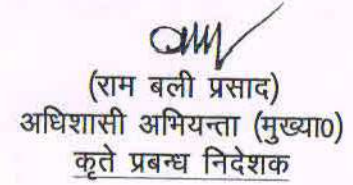 (राम बली प्रसाद)
अधिशासी अभियन्ता (मुख्या0)
कृते प्रबन्ध निदेशक